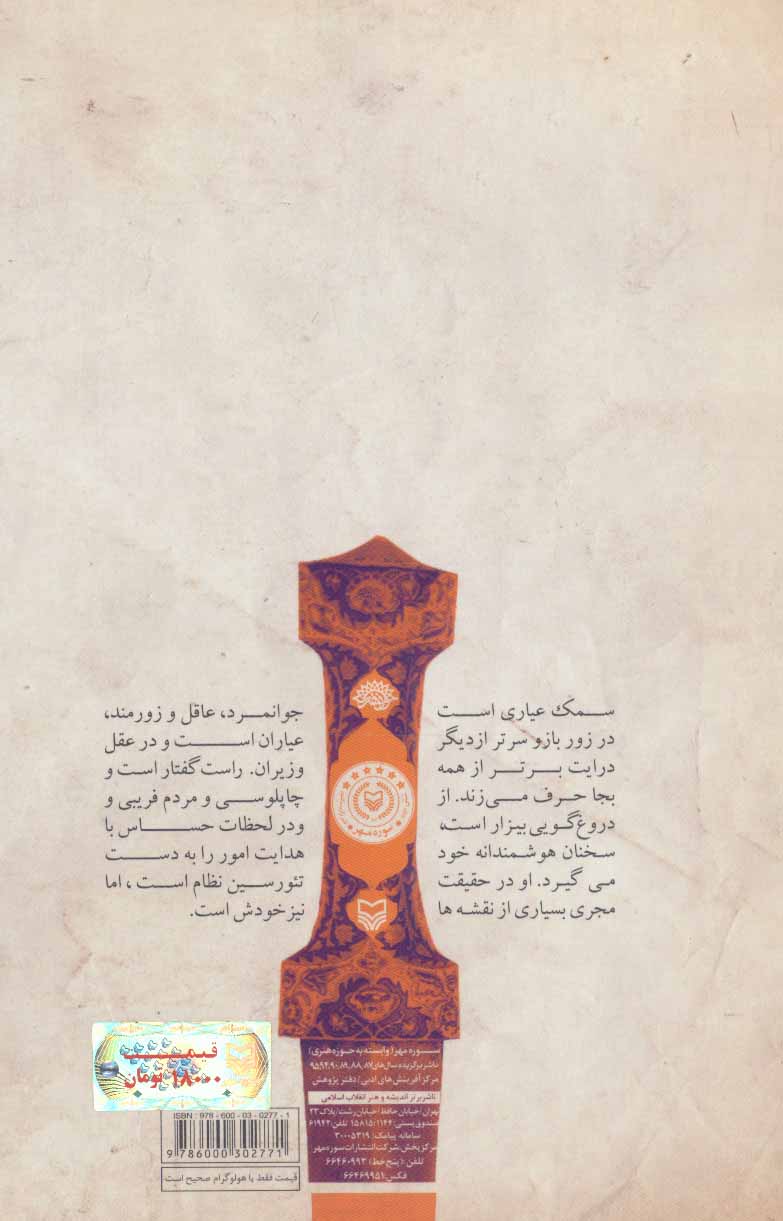 سمک عیاری است جوانمرد، عاقل و زورمند،
در زور بازو سرتر از دیگر عیاران است و در عقل
درایت برتر از همه وزیران. راست گفتار است و
بجا حرف می‌زند. از چاپلوسی و مردم فریبی و
دروغ‌گویی بیزار است، ودر لحظات حساس با
سخنان هوشمندانه خود هدایت امور را به دست
می گیرد. او در حقیقت تئورسین نظام است، اما
مجری بسیاری از نقشه ها نیز خودش است.
سوره مهر
سوره مهر (وابسته به حوزه هنری)
ناشر برگزیده سال‌های ۸۷، ۸۸، ۸۹، ۹۰، ۹۴ و ۹۵
مرکز آفرینش‌های ادبی / دفتر پژوهش
ناشر برتر اندیشه و هنر انقلاب اسلامی
تهران / خیابان حافظ / خیابان رشت / پلاک ۲۳
صندوق پستی: ۱۱۴۴ / ۱۵۸۱۵ تلفن: ۶۱۹۴۲
سامانه پیامک: ۳۰۰۰۵۳۱۹
مرکز پخش: شرکت انتشارات سوره مهر
تلفن: (پنج خط) ۶۶۴۶۰۹۹۳
فکس: ۶۶۴۶۹۹۵۱
قیمت
۱۸۰۰۰ تومان
ISBN: 978-600-03-0277-1
9 786000 302771
قیمت فقط با هولوگرام صحیح است